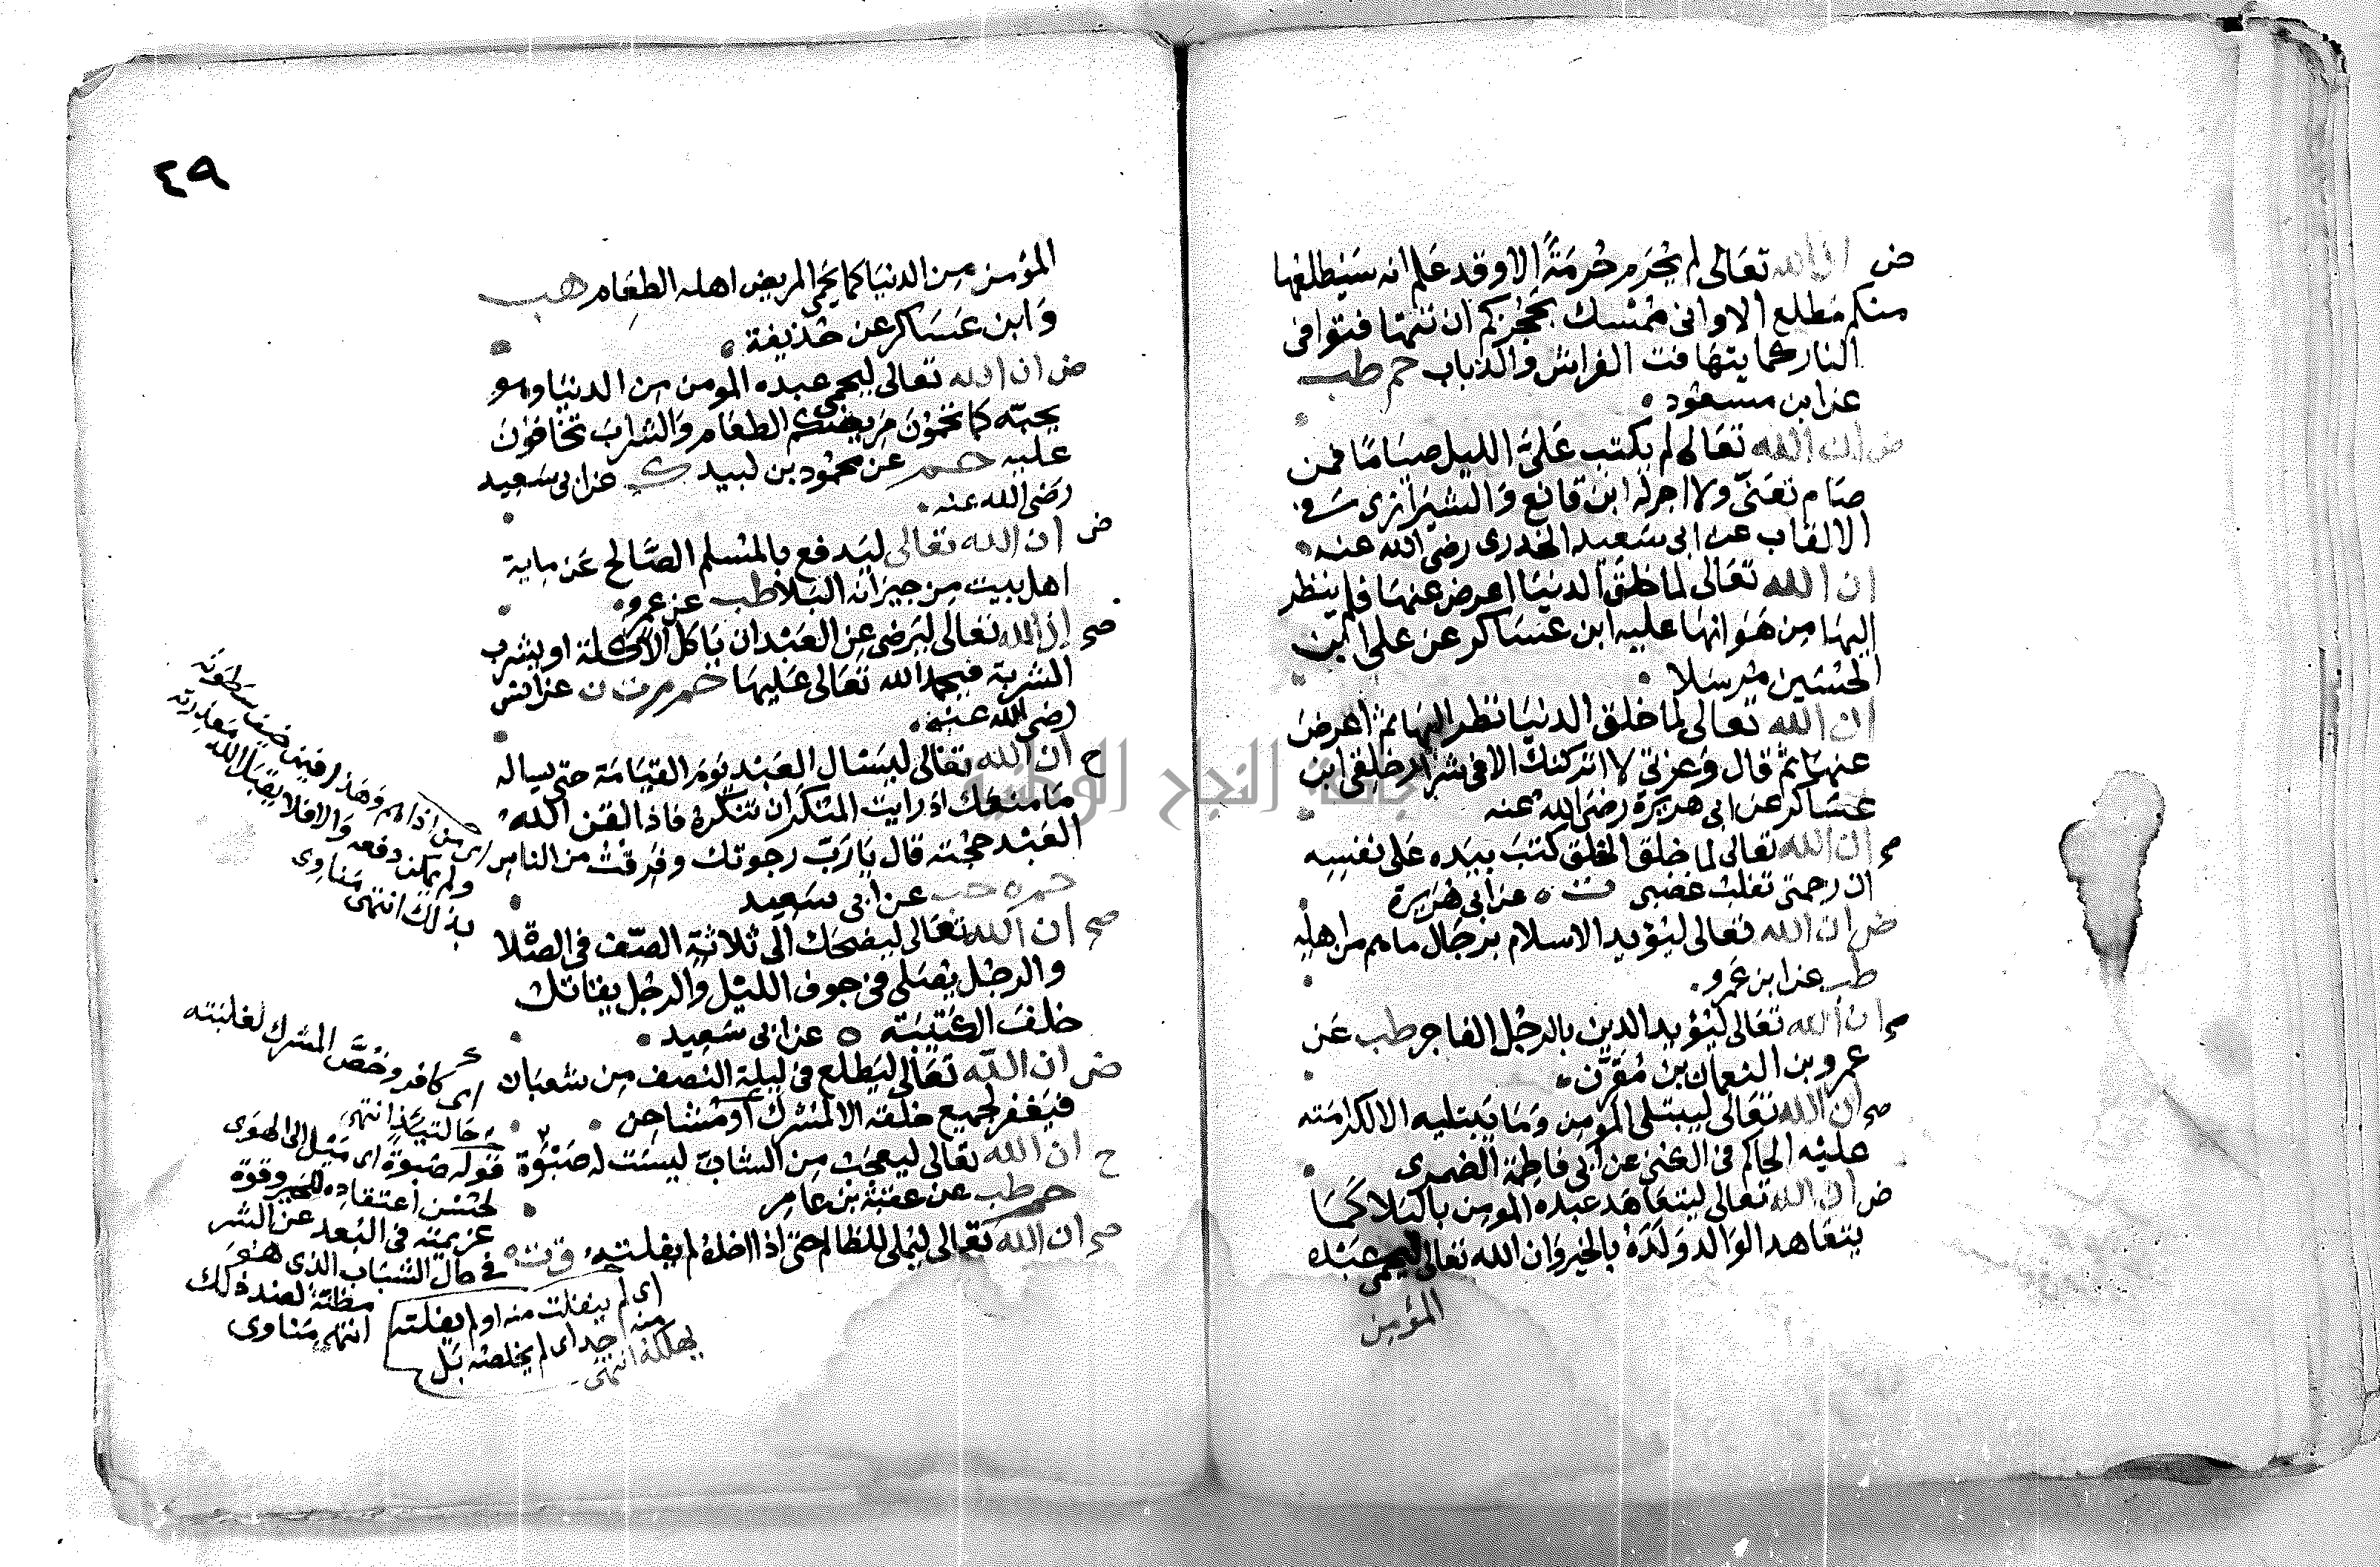 ض ان الله تعالى لم يحرم حرمة الا وقد علم انه سيطلعها
منكم مطلع الا وانى ممسك بحجزكم ان تهافتوا فى
النار كما يتهافت الفراش والذباب حم طب
عن ابن مسعود
ض ان الله تعالى لم يكتب على الليل صياما فمن
صام تعنى ولا اجر له ابن قانع والشيرازى فى
الالقاب عن ابى سعيد الخدرى رضى الله عنه
ان الله تعالى لما خلق الدنيا اعرض عنها فلم ينظر
اليها من هوانها عليه ابن عساكر عن على ابن
الحسين مرسلا
ان الله تعالى لما خلق الدنيا نظر اليها ثم اعرض
عنها ثم قال وعزتي لا انزلتك الا فى شرار خلقى ابن
عساكر عن ابى هريرة رضى الله عنه
صح ان الله تعالى لما خلق الخلق كتب بيده على نفسه
ان رحمتى تغلب غضبى ت ه عن ابى هريرة
ض ان الله تعالى ليؤيد الاسلام برجال ما هم من اهله
طب عن ابن عمرو
صح ان الله تعالى ليؤيد الدين بالرجل الفاجر طب عن
عمرو بن النعمان بن مقرن
صح ان الله تعالى ليبتلى المومن وما يبتليه الا لكرامته
عليه الحاكم فى الكنى عن ابى فاطمة الضمرى
ض ان الله تعالى ليتعاهد عبده المومن بالبلا كما
يتعاهد الوالد ولده بالخير وان الله تعالى ليحمى عبده
المؤمن
٤٩
المؤمن من الدنيا كما يحمى المريض اهله الطعام هب
وابن عساكر عن حذيفة
ض ان الله تعالى ليحمى عبده المومن من الدنيا وهو
يحبه كما تحمون مريضكم الطعام والشراب تخافون
عليه حم عن محمود بن لبيد ك عن ابى سعيد
رضى الله عنه
ض ان الله تعالى ليدفع بالمسلم الصالح عن ماية
اهل بيت من جيرانه البلا طب عن عمرو
صح ان الله تعالى ليرضى عن العبد ان ياكل الاكلة او يشرب
الشربة فيحمد الله تعالى عليها حم م ت ن عن انس
رضى الله عنه
ح ان الله تعالى ليسئال العبد يوم القيامة حتى يساله
ما منعك اذ رايت المنكر ان تنكره فاذا لقن الله
العبد حجته قال يا رب رجوتك وفرقت من الناس
حم ه حب عن ابى سعيد
صح ان الله تعالى ليضحك الى ثلاثة الصف فى الصلا
والرجل يصلى فى جوف الليل والرجل يقاتل
خلف الكتيبة ه عن ابى سعيد
ض ان الله تعالى ليطلع فى ليلة النصف من شعبان
فيغفر لجميع خلقه الا لمشرك او مشاحن
ح ان الله تعالى ليعجب من الشاب ليست له صبوة
حم طب عن عقبة بن عامر
صح ان الله تعالى ليملى للظالم حتى اذا اخذه لم يفلته ق ت ه
اى من اذاهم وهذا فيمن خيف سطوته
ولم يمكن دفعه والا فلا يقبل الله معذرته
بذلك انتهى مناوى
اى كافر وخص المشرك لغلبته
حالتئذ انتهى
قوله صبوة اى ميل الى الهوى
لحسن اعتقاده للخير وقوة
عزيمته فى البعد عن الشر
فى حال الشباب الذى هو
مظنة لضد ذلك
انتهى مناوى
اى لم ينفلت منه او لم يفلته
منه احد اى لم يخلصه بل
يهلكه انتهى
جامعة النجاح الوطنية